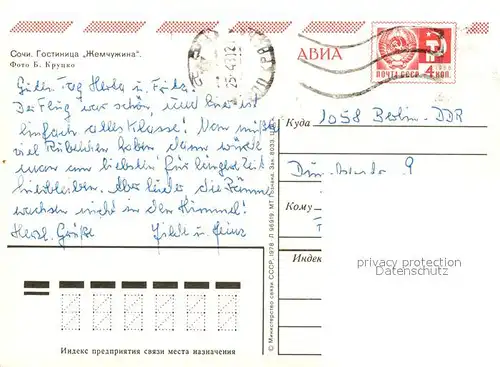 Сочи. Гостиница „Жемчужина“.
Фото Б. Круцко
АВИА
ПОЧТА СССР 4 КОП.
Guten Tag Herta u. Fritz.
Der Flug war schön und hier ist
einfach alles Klasse! Man müßte
viel Rubelchen haben dann würde
man am liebsten für längere Zeit
hierbleiben. Aber leider die Bäume
wachsen nicht in den Himmel!
Herzl. Grüße Hilde u. Heinz
Куда
1058 Berlin - DDR
9
Кому
Индекс
privacy protection
Datenschutz
Индекс предприятия связи места назначения
© Министерство связи СССР, 1978